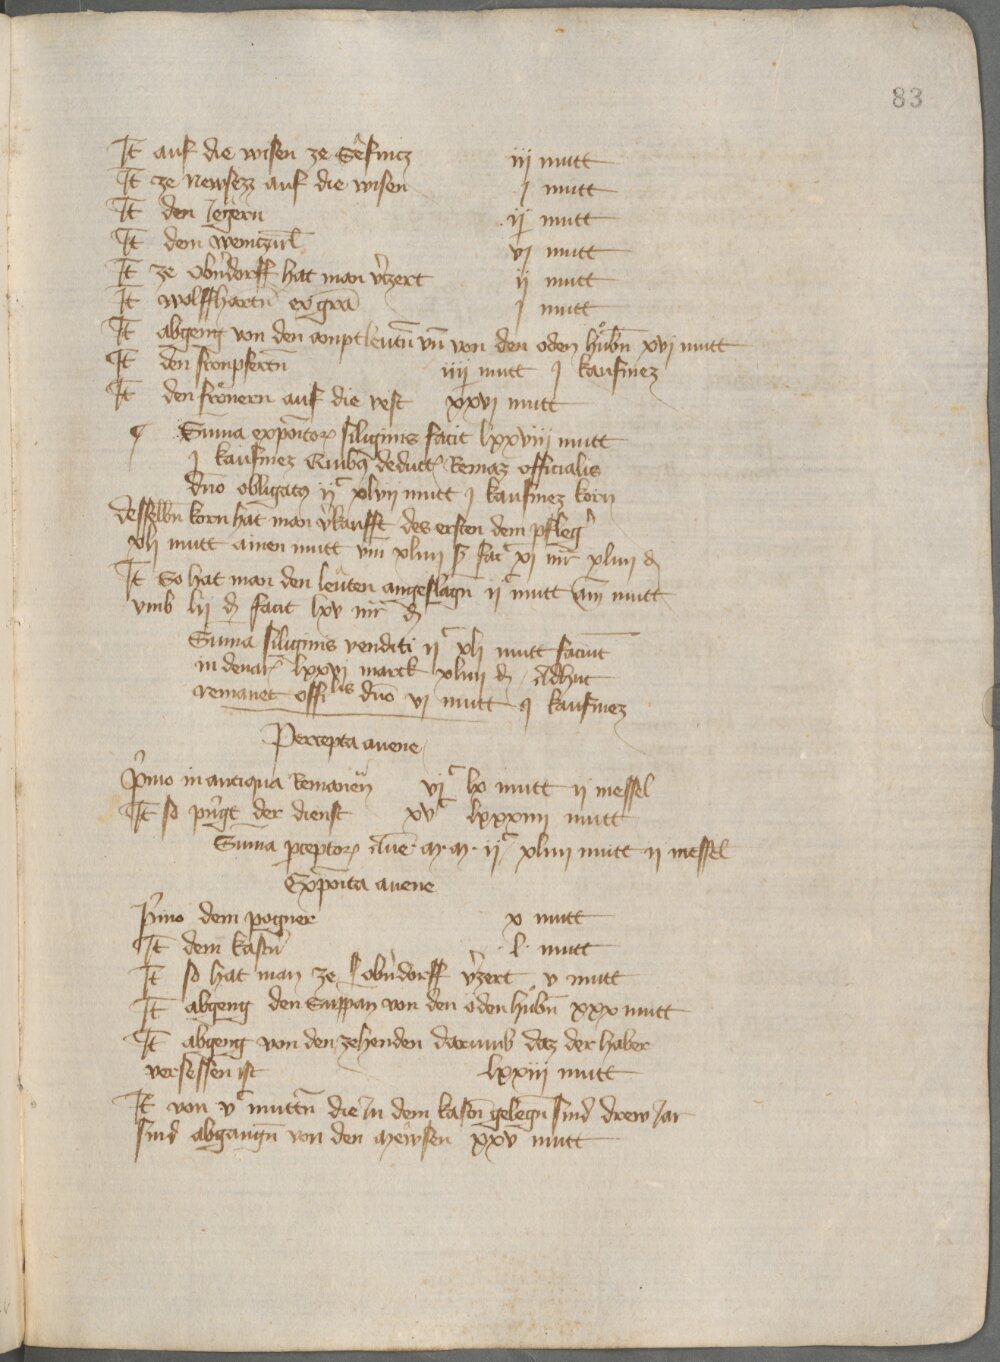 83
It auf die wisen ze Sêfnicz iii mutt
It ze newsezz auf die wisen j mutt
It den Jegern ij mutt
It dem weinczürl vj mutt
It ze Obndorff hat man vzert ij mutt
It wolffhartn ex gra j mutt
It abgeng von den amptleutn vn von den oden hůbn xvj mutt
It den fronpfertn iiij mutt j kaufmez
It den fronern auf die vest xxvj mutt
¶ Suma expoitor siliginis facit lxxviij mutt
j kaufmez Quibq deduct Remaz officialis
dno obligatq ijc xlvij mutt j kaufmez korn
desselbn korn hat man vkaufft des ersten dem pfleg
xlj mutt ainen mutt vm xliiij ₰ fac xj mr xliiij ₰
It So hat man den leuten angeslagn ijc mutt ain mutt
vmb lij ₰ facit lxv mr ₰
Suma siliginis venditi ijc xlj mutt faciut
in denar lxxvj marck xliiij ₰ Adhuc
remanet offilis dno vj mutt j kaufmez
Percepta auene
Pimo in antiqua Remanen vjc lx mutt ij messel
It so pngt der dienst xvc lxxxiiij mutt
Suma pceptor Aue m m ijc xliiij mutt ij messel
Expoita auene
Pimo dem pogner x mutt
It dem kastn l mutt
It so hat man ze obndorff vzert v mutt
It abgeng den Suppan von den oden hubn xxx mutt
It abgeng von den zehenden darumb daz der haber
versessen ist lxxiij mutt
It von vc muttn die Jn dem kastn gelegn sind drew Jar
sind abgangn von den mewsen xxv mutt